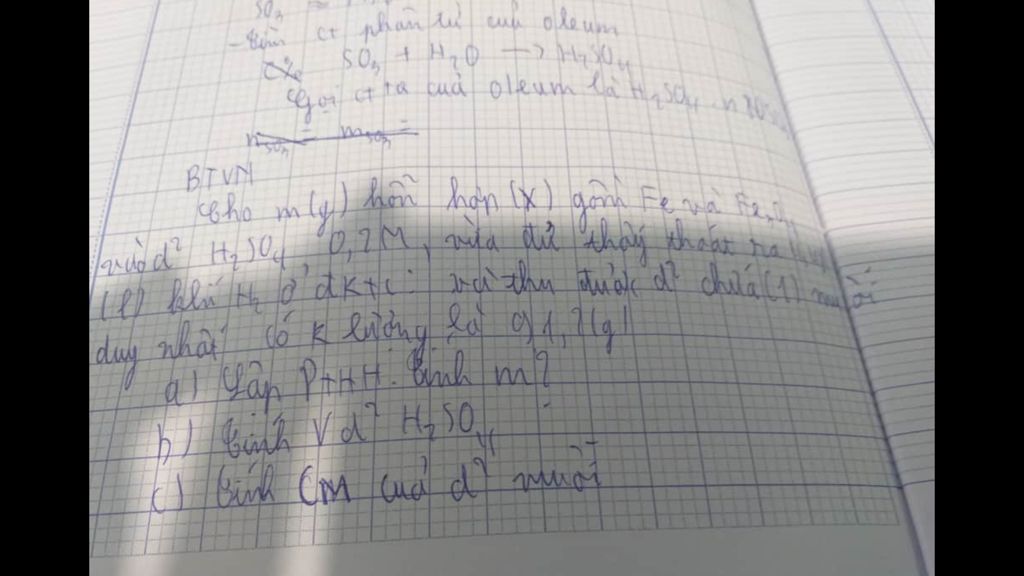 SO₃
- Tìm ct phân tử của oleum
C% SO₃ + H₂O → H₂SO₄
Gọi ct ra của oleum là H₂SO₄.n
nSO₃ = mSO₃ =
BTVN
Cho m(g) hỗn hợp (X) gồm Fe và
vào d² H₂SO₄ 0,2M, vừa đủ thấy thoát ra
(l) khí H₂ ở đktc và thu được d² chứa (1) muối
duy nhất có k lượng là 91,2(g)
a) Lập PTHH. Tính m?
b) Tính V d² H₂SO₄
c) Tính CM của d² muối